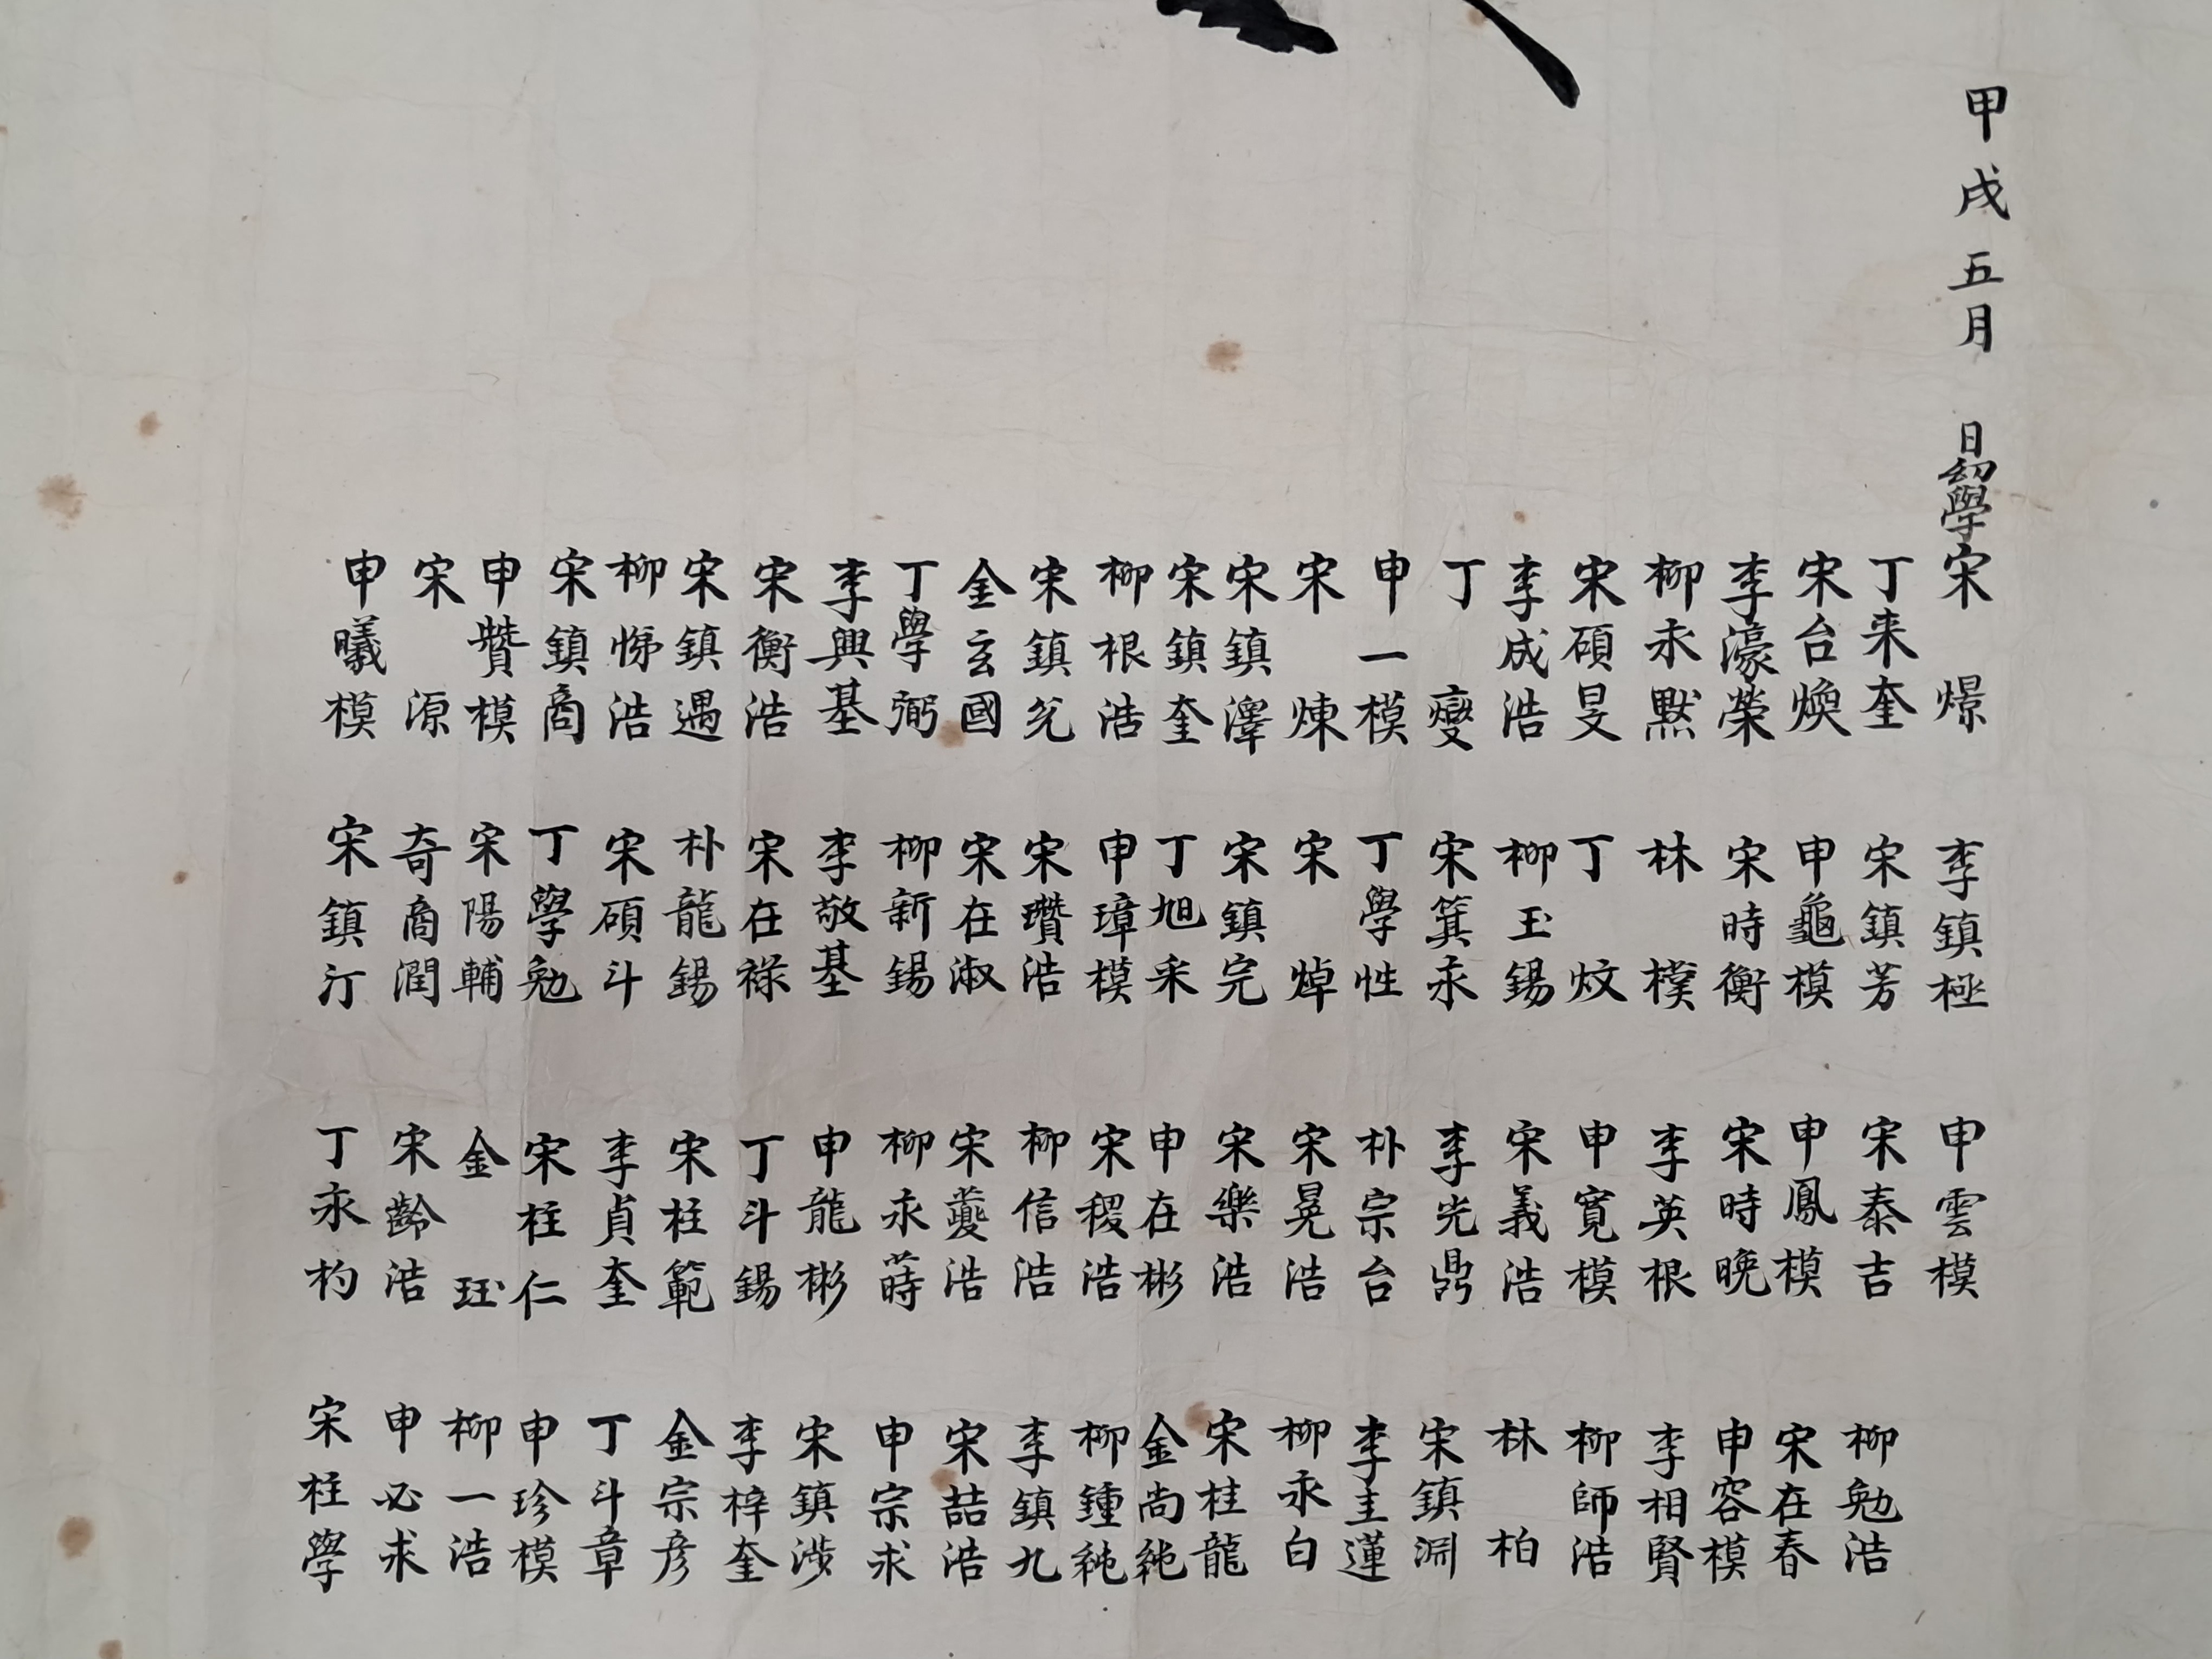 甲戌五月 日幼學
宋 憬
丁来奎
宋台煥
李濠榮
柳永默
宋碩旻
李成浩
丁 燮
申一模
宋 煉
宋鎮澤
宋鎮奎
柳根浩
宋鎮兊
金玄國
丁學弼
李興基
宋衡浩
宋鎮遇
柳悌浩
宋鎮商
申贊模
宋 源
申曦模
李鎮極
宋鎮芳
申龜模
宋時衡
林 樸
丁 炆
柳玉錫
宋箕永
丁學性
宋 焯
宋鎮完
丁旭采
申璋模
宋瓚浩
宋在淑
柳新錫
李敬基
宋在祿
朴龍錫
宋碩斗
丁學勉
宋陽輔
奇商潤
宋鎮汀
申雲模
宋泰吉
申鳳模
宋時晚
李英根
申寬模
宋義浩
李光鼎
朴宗台
宋晃浩
宋樂浩
申在彬
宋稷浩
柳信浩
宋夔浩
柳永蒔
申龍彬
丁斗錫
宋柱範
李貞奎
宋柱仁
金 珏
宋齡浩
丁永杓
柳勉浩
宋在春
申容模
李相賢
柳師浩
林 柏
宋鎮淵
李圭蓮
柳永白
宋桂龍
金尚純
柳鍾純
李鎮九
宋喆浩
申宗求
宋鎮涉
李梓奎
金宗彦
丁斗章
申珍模
柳一浩
申必求
宋柱學